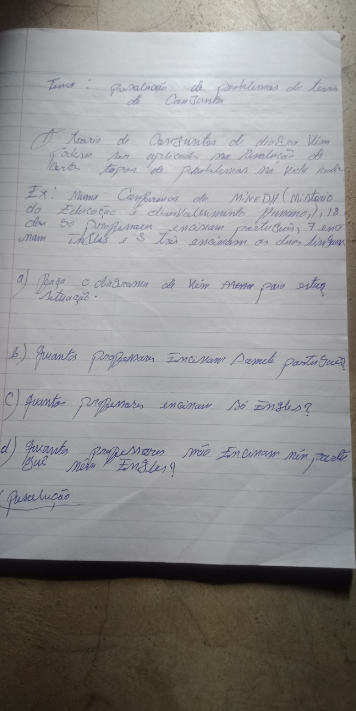 Tema: Resolução de problemas de teoria
de Conjuntos
A teoria de Conjuntos de diagra Vim
podem ser aplicadas na Resolução de
certos tipos de problemas na vida
Ex: Numa Conferencia do MINEDH (Ministerio
do Educação e desenvolvimento Humano), 18
dos 50 professores ensinam português, 7 ensi
nam inglês e 3 três ensinam as duas línguas
a) Faça o diagrama de Vim para esta
situação.
b) Quantos professores Encinam Somente português?
c) Quantos professores encinam só Inglês?
d) Quantos professores não Encinam nim portu
guê nem Inglês?
Resolução